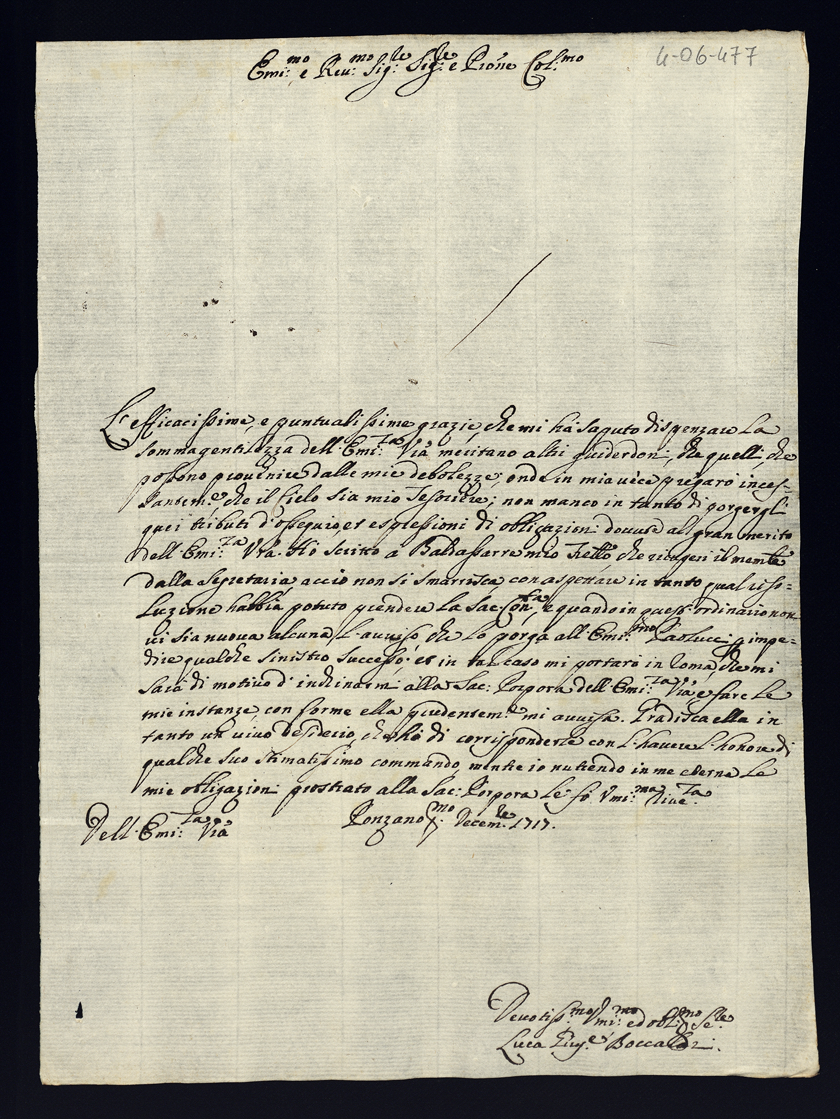 4-06-477
Emi:mo e Reu:mo Sig:re Sig:re e Prone Col:mo
L'efficacissime, e puntualissime grazie, che mi hà saputo dispenzare la
somma gentilezza dell'Emi:za Vrã meritano altri guiderdoni, che quelli, che
possono prouenire dalle mie debolezze; onde in mia uece pregarò inces-
santem:e che il Cielo sia mio Tesoriere; non manco in tanto di porgergli
quei tributi d'ossequio, et espressioni di obligazioni douute al gran merito
dell'Emi:za Vrã. Hò scritto à Baldassarre mio frello, che
dalla Segretaria acciò non si smarrisca con aspettare in tanto qual riso-
luzione habbia potuto prendere la Sac: Con:ta, e quando in quest'ordinario non
ui sia nuoua alcuna l'auuiso che lo porga all'Emi:mo Paolucci p impe-
dire qualche sinistro successo; et in tal caso mi portarò in Roma, che mi
sarà di motiuo d'inchinarmi alla Sac: Porpora dell'Emi:za Vrã e fare le
mie instanze con forme ella prudentem:e mi auuisa. Gradisca ella in
tanto un uiuo desiderio, che hò di corrisponderle con l'hauere l'honore di
qualche suo stimatissimo commando, mentre io nutrendo in me eterne le
mie obligazioni prostrato alla Sac: Porpora le fò Vmi:ma riue:za
Dell'Emi:za Vrã Ponzano p:mo Decem:re 1717.
Deuotiss:mo Vmi:mo ed obl:mo Se:re
Luca Eug:e Boccaldi.